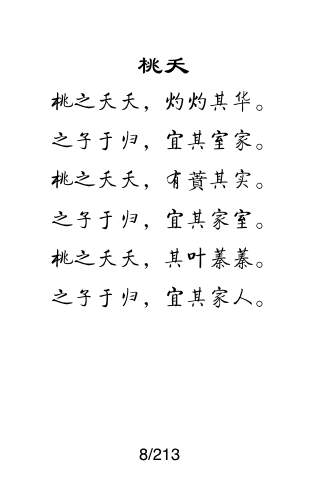 桃夭
桃之夭夭，灼灼其华。
之子于归，宜其室家。
桃之夭夭，有蕡其实。
之子于归，宜其家室。
桃之夭夭，其叶蓁蓁。
之子于归，宜其家人。
8/213